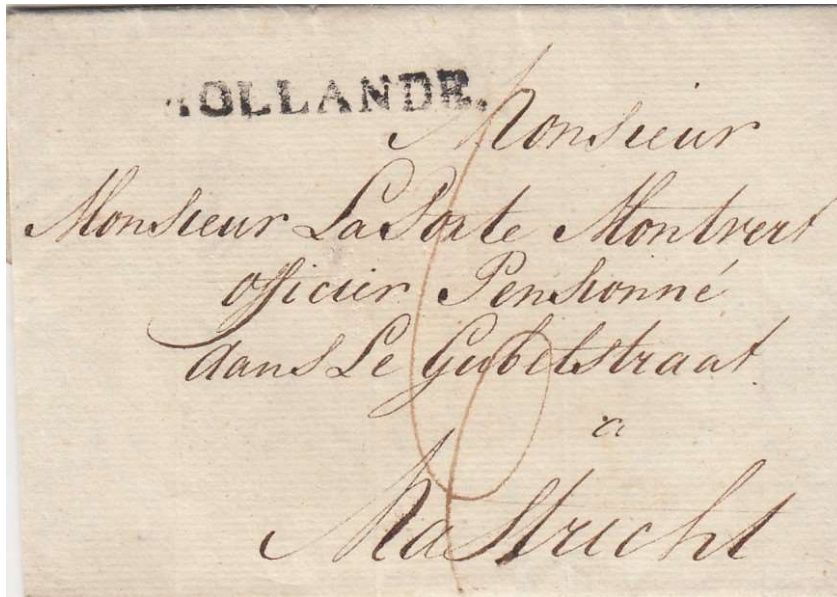 HOLLANDE.
Monsieur
Monsieur La Porte Montvert
officier Pensionné
dans Le Gubelstraat
6
a
Mastricht